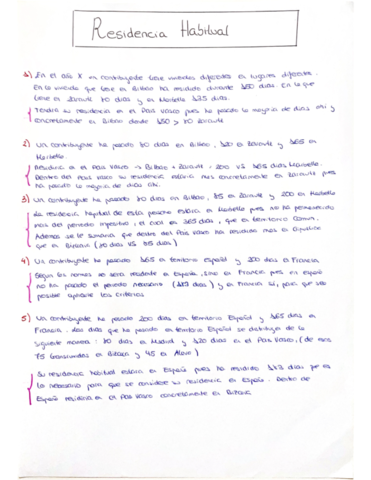 Residencia Habitual
1) En el año X un contribuyente tiene viviendas diferentes en lugares diferentes.
En la vivienda que tiene en Bilbao ha residido durante 150 días. En la que
tiene en Zarautz 70 días y en Marbella 125 días.
Tendrá su residencia en el País Vasco pues ha pasado la mayoría de días ahí y
concretamente en Bilbao donde 150 > 70 Zarautz
2) Un contribuyente ha pasado 80 días en Bilbao, 120 en Zarautz y 165 en
Marbella.
Residirá en el País Vasco → Bilbao + Zarautz = 200 vs 165 días Marbella.
Dentro del País Vasco su residencia estará más concretamente en Zarautz pues
ha pasado la mayoría de días ahí.
3) Un contribuyente ha pasado días en Bilbao, en Zarautz y 200 en Marbella
La residencia habitual de esta persona estará en Marbella pues no ha permanecido
más del periodo impositivo, el cual es 365 días, que en territorio Común.
Además se le que dentro del País Vasco ha residido más en
que en
4) Un contribuyente ha pasado 165 en territorio español y 200 días en Francia
Según las normas no será residente en España, sino en Francia pues en España
no ha pasado el periodo necesario (183 días) y en Francia sí, para que sea
posible aplicarse los criterios
5) Un contribuyente ha pasado 200 días en territorio Español y 165 días en
Francia. Los días que ha pasado en territorio Español se distribuyen de la
siguiente manera: días en Madrid y 120 días en el País Vasco, (de esos
75 en Bizkaia y 45 en Álava)
Su residencia habitual estará en España pues ha residido 183 días que es
lo necesario para que se considere su residencia en España. Dentro de
España residiría en el País Vasco concretamente en Bizkaia